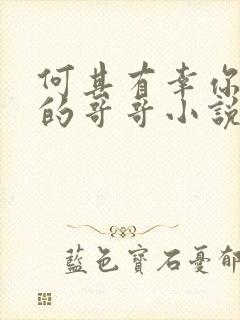 何其有幸你
的哥哥小說
藍色寶石憂郁